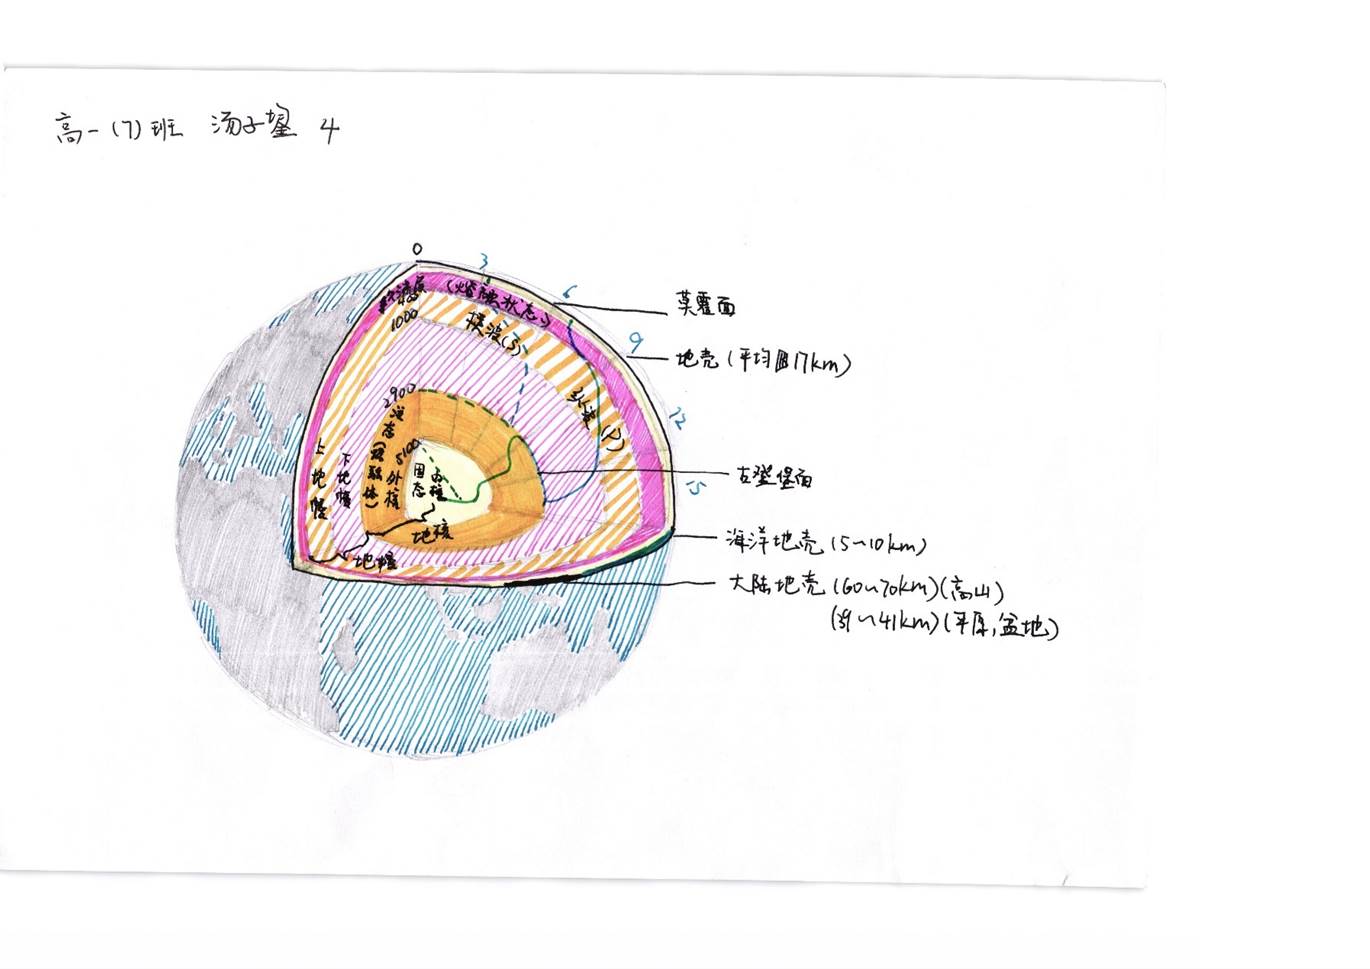 高一(7)班 汤子堃 4
0
3
6
9
12
15
莫霍面
地壳(平均17km)
古登堡面
海洋地壳(5~10km)
大陆地壳(60~70km)(高山)
(39~41km)(平原,盆地)
软流层(熔融状态)
400
1000
横波(S)
纵波(P)
2900
液态(熔融体)
5100
外核
固态
内核
地核
上地幔
下地幔
地幔